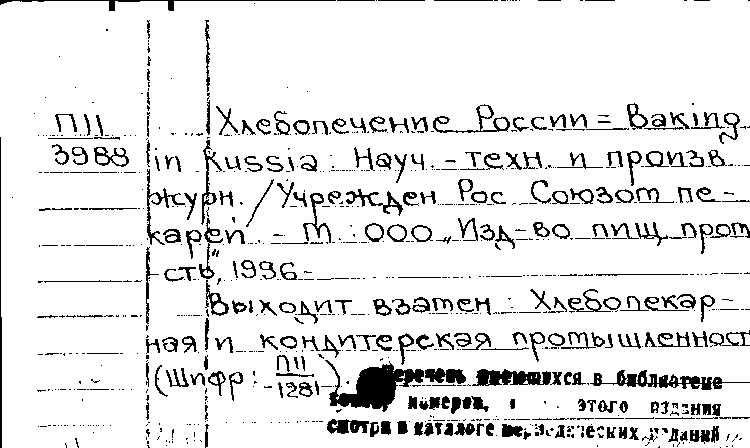 П11 Хлебопечение России = Baking
3988 in Russia : Науч. - техн. и произв.
журн. / Учрежден Рос. Союзом пе-
карей. - М. : ООО "Изд-во пищ. пром-
сть", 1996-
Выходит взамен : Хлебопекар-
ная и кондитерская промышленност
(Шифр : П11/1281).
Перечень имеющихся в библиотеке
номеров, этого издания
смотри в каталоге периодических изданий